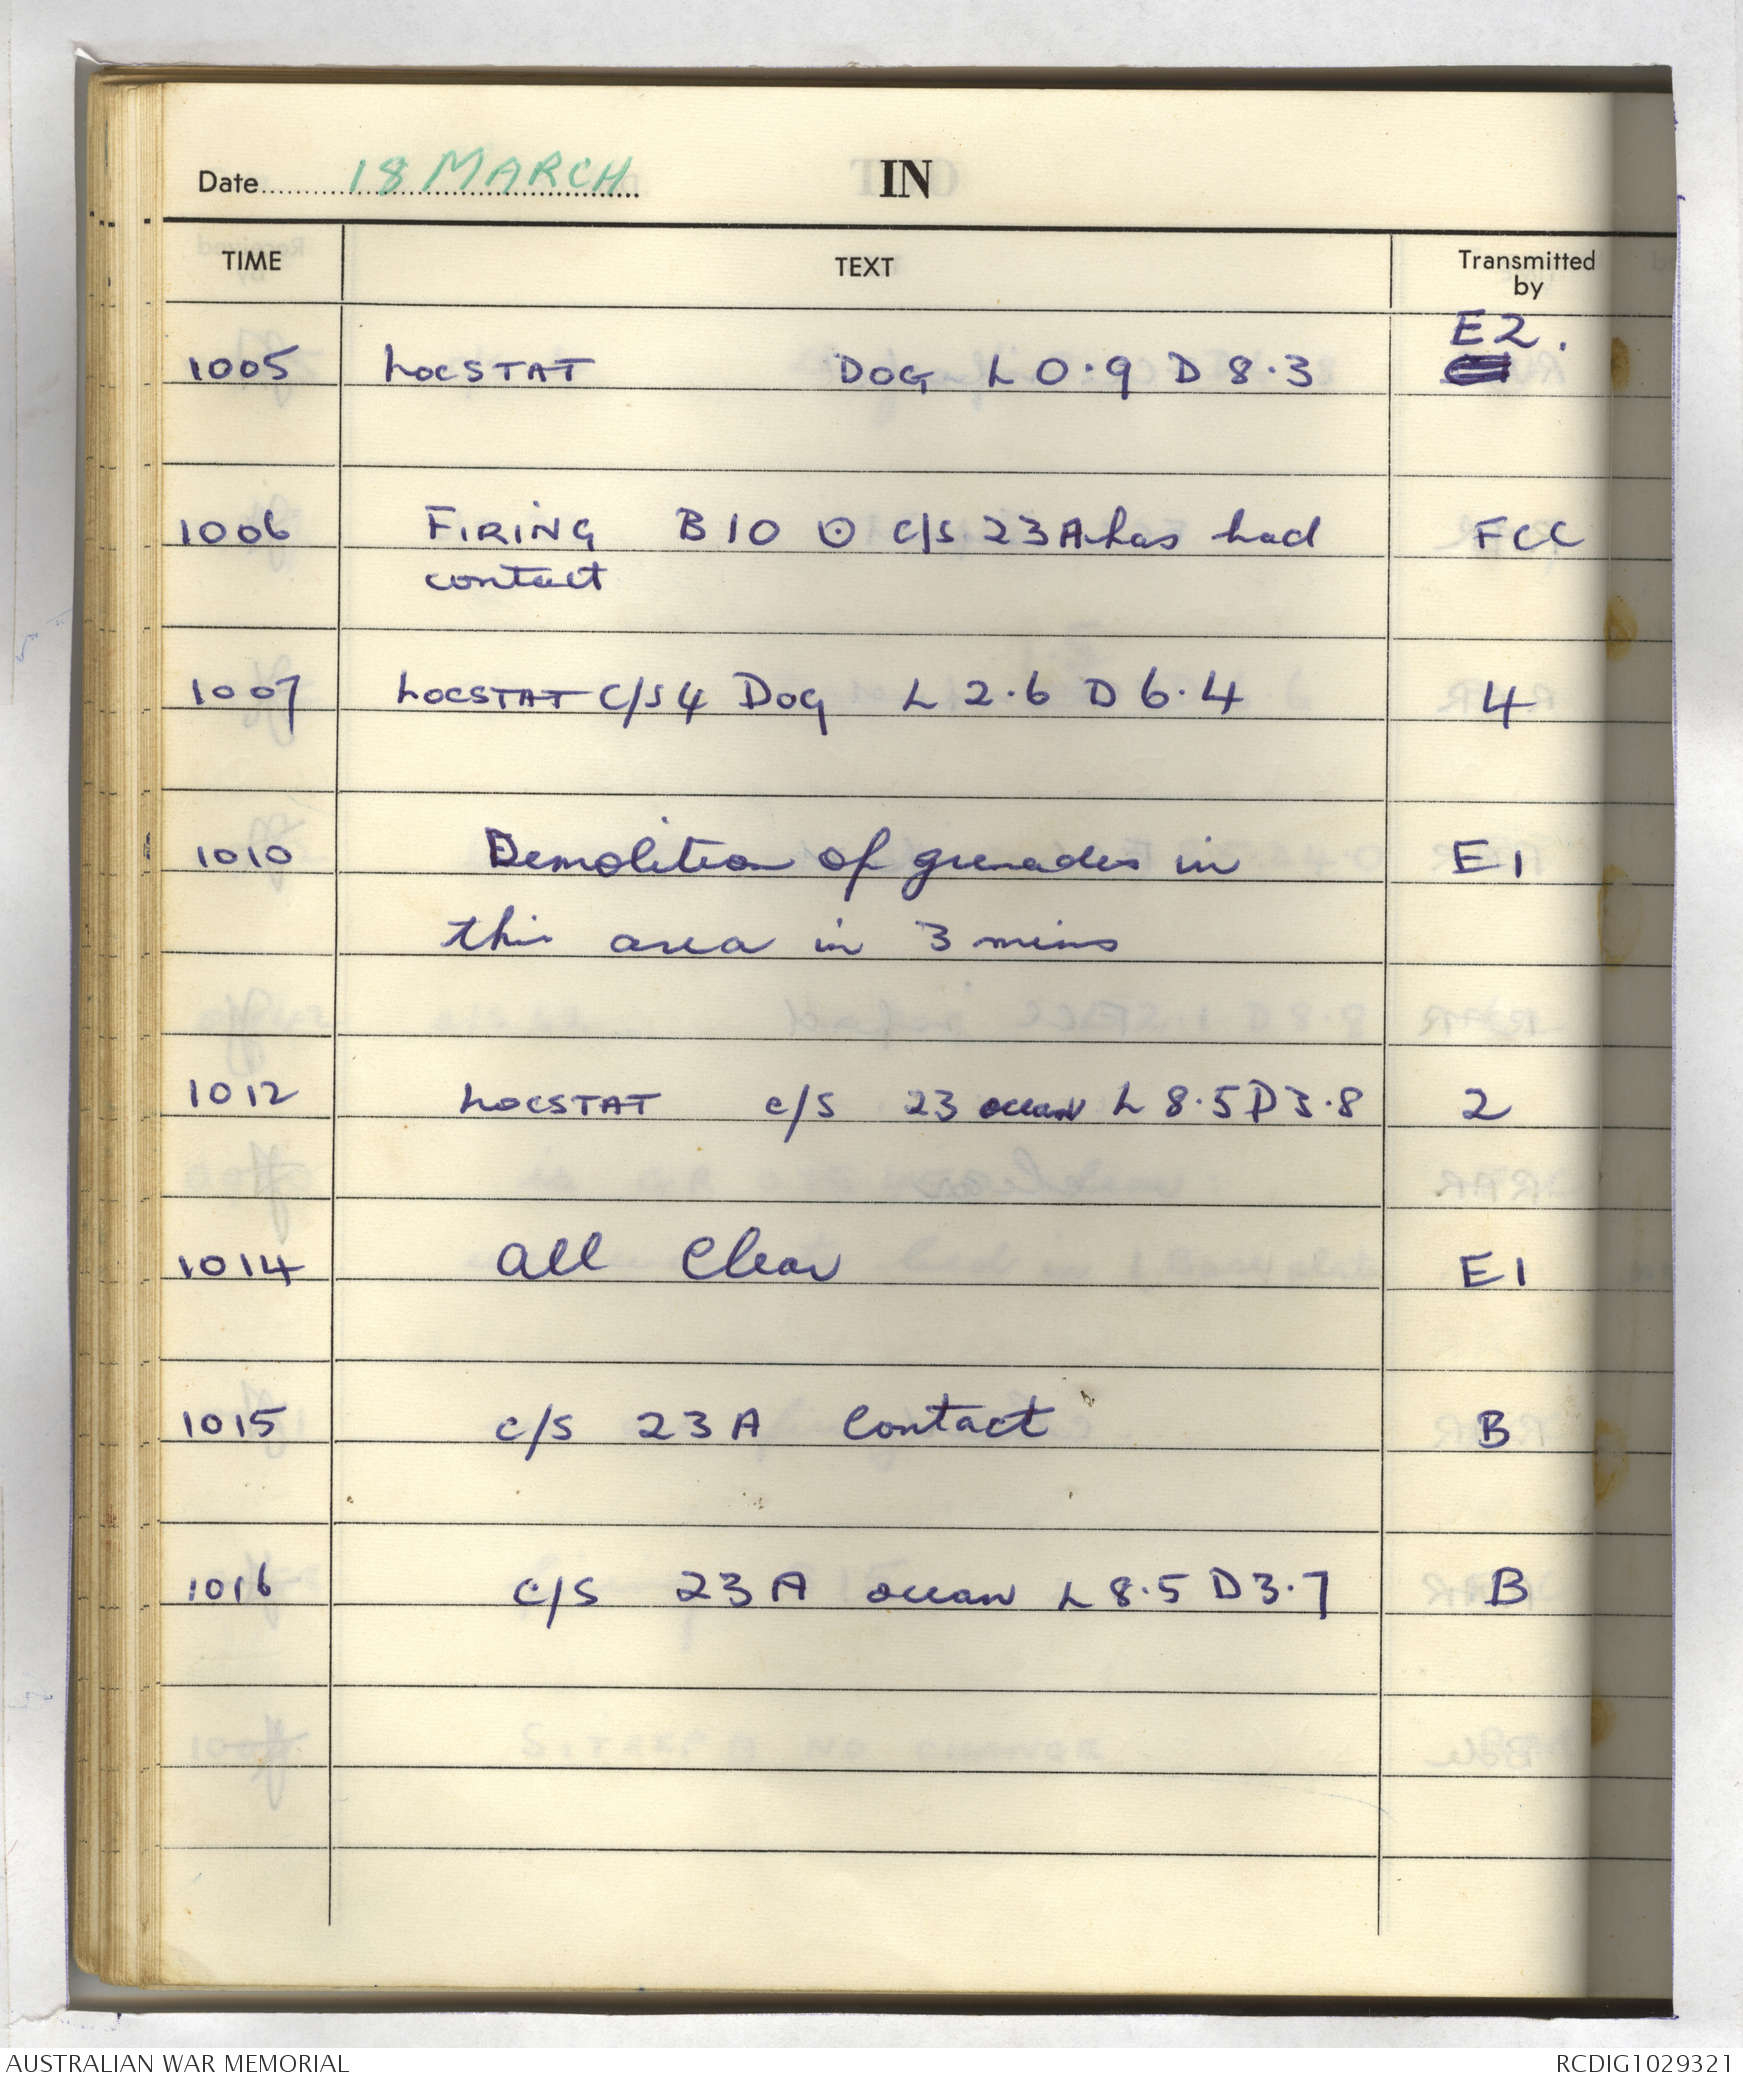 Date 18 MARCH IN
TIME TEXT Transmitted by
1005 LOCSTAT DOG L 0.9 D 8.3 E2.
1006 FIRING B10 ⊙ C/S 23A has had FCC
contact
1007 LOCSTAT C/S 4 DOG L 2.6 D 6.4 4
1010 Demolition of grenades in E1
this area in 3 mins
1012 LOCSTAT C/S 23 ocean L 8.5 D 3.8 2
1014 all Clear E1
1015 C/S 23A Contact B
1016 C/S 23A ocean L 8.5 D 3.7 B
AUSTRALIAN WAR MEMORIAL RCDIG1029321